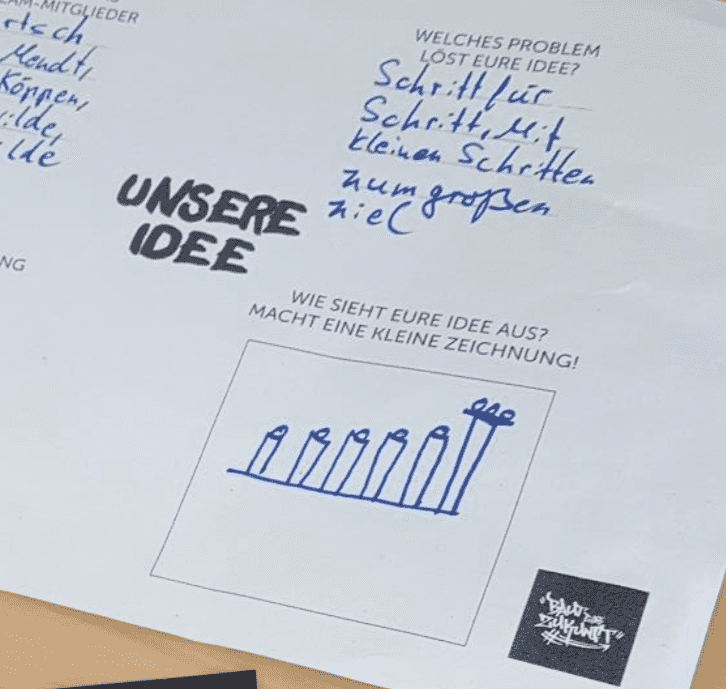 TEAM-MITGLIEDER
Mendt,
Köppen,
WELCHES PROBLEM
LÖST EURE IDEE?
Schritt für
Schritt, Mit
kleinen Schritten
zum großen
ziel
UNSERE
IDEE
NG
WIE SIEHT EURE IDEE AUS?
MACHT EINE KLEINE ZEICHNUNG!
"BAUT EURE
ZUKUNFT"